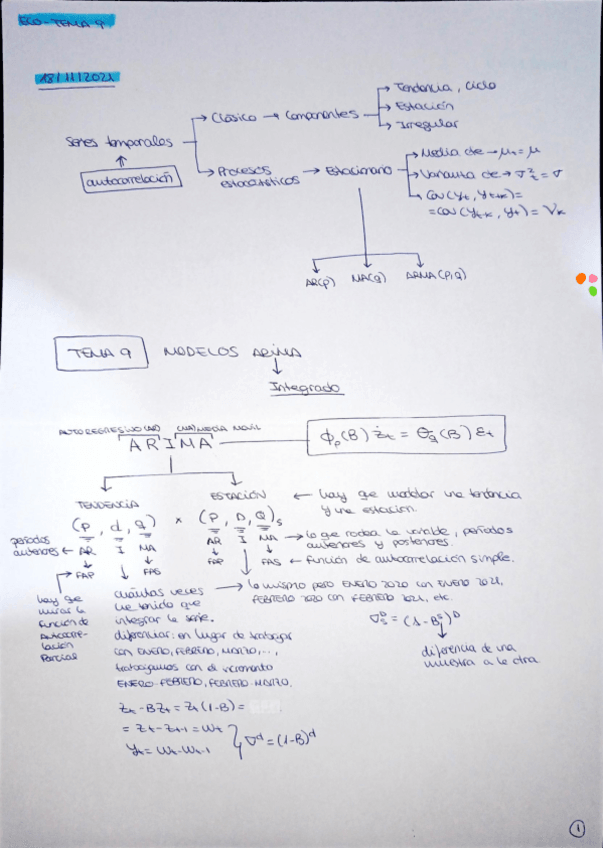 ECO-TEMA 9
18/11/2021
Series temporales
autocorrelación
Clásico → Componentes
Tendencia, ciclo
Estación
Irregular
Procesos estocásticos → Estacionario
Media cte → μt = μ
Varianza cte → σ²t = σ
Cov(yt, yt+k) =
= cov(yt-k, yt) = γk
AR(p) MA(q) ARMA(p,q)
TEMA 9 MODELOS ARIMA
Integrado
AUTOREGRESIVO (AR) (MA) MEDIA MÓVIL
ARIMA
ϕp(B) żt = θq(B) εt
TENDENCIA
ESTACIÓN
← hay que modelar una tendencia
y una estación.
(p, d, q) × (P, D, Q)s
periodos
anteriores ← AR I MA
AR I MA
→ lo que rodea la variable, periodos
anteriores y posteriores.
FAP FAS
FAP FAS ← función de autocorrelación simple.
hay que
mirar la
función de
Autocorre-
lación
Parcial
cuántas veces
he tenido que
integrar la serie.
diferenciar: en lugar de trabajar
con ENERO, FEBRERO, MARZO,...,
trabajamos con el incremento
ENERO-FEBRERO, FEBRERO-MARZO.
→ lo mismo pero ENERO 2020 con ENERO 2021,
FEBRERO 2020 con FEBRERO 2021, etc.
∇sD = (1-Bs)D
diferencia de una
muestra a la otra
zt - Bzt = zt(1-B) =
= zt - zt-1 = wt
yt = wt - wt-1
∇d = (1-B)d
1